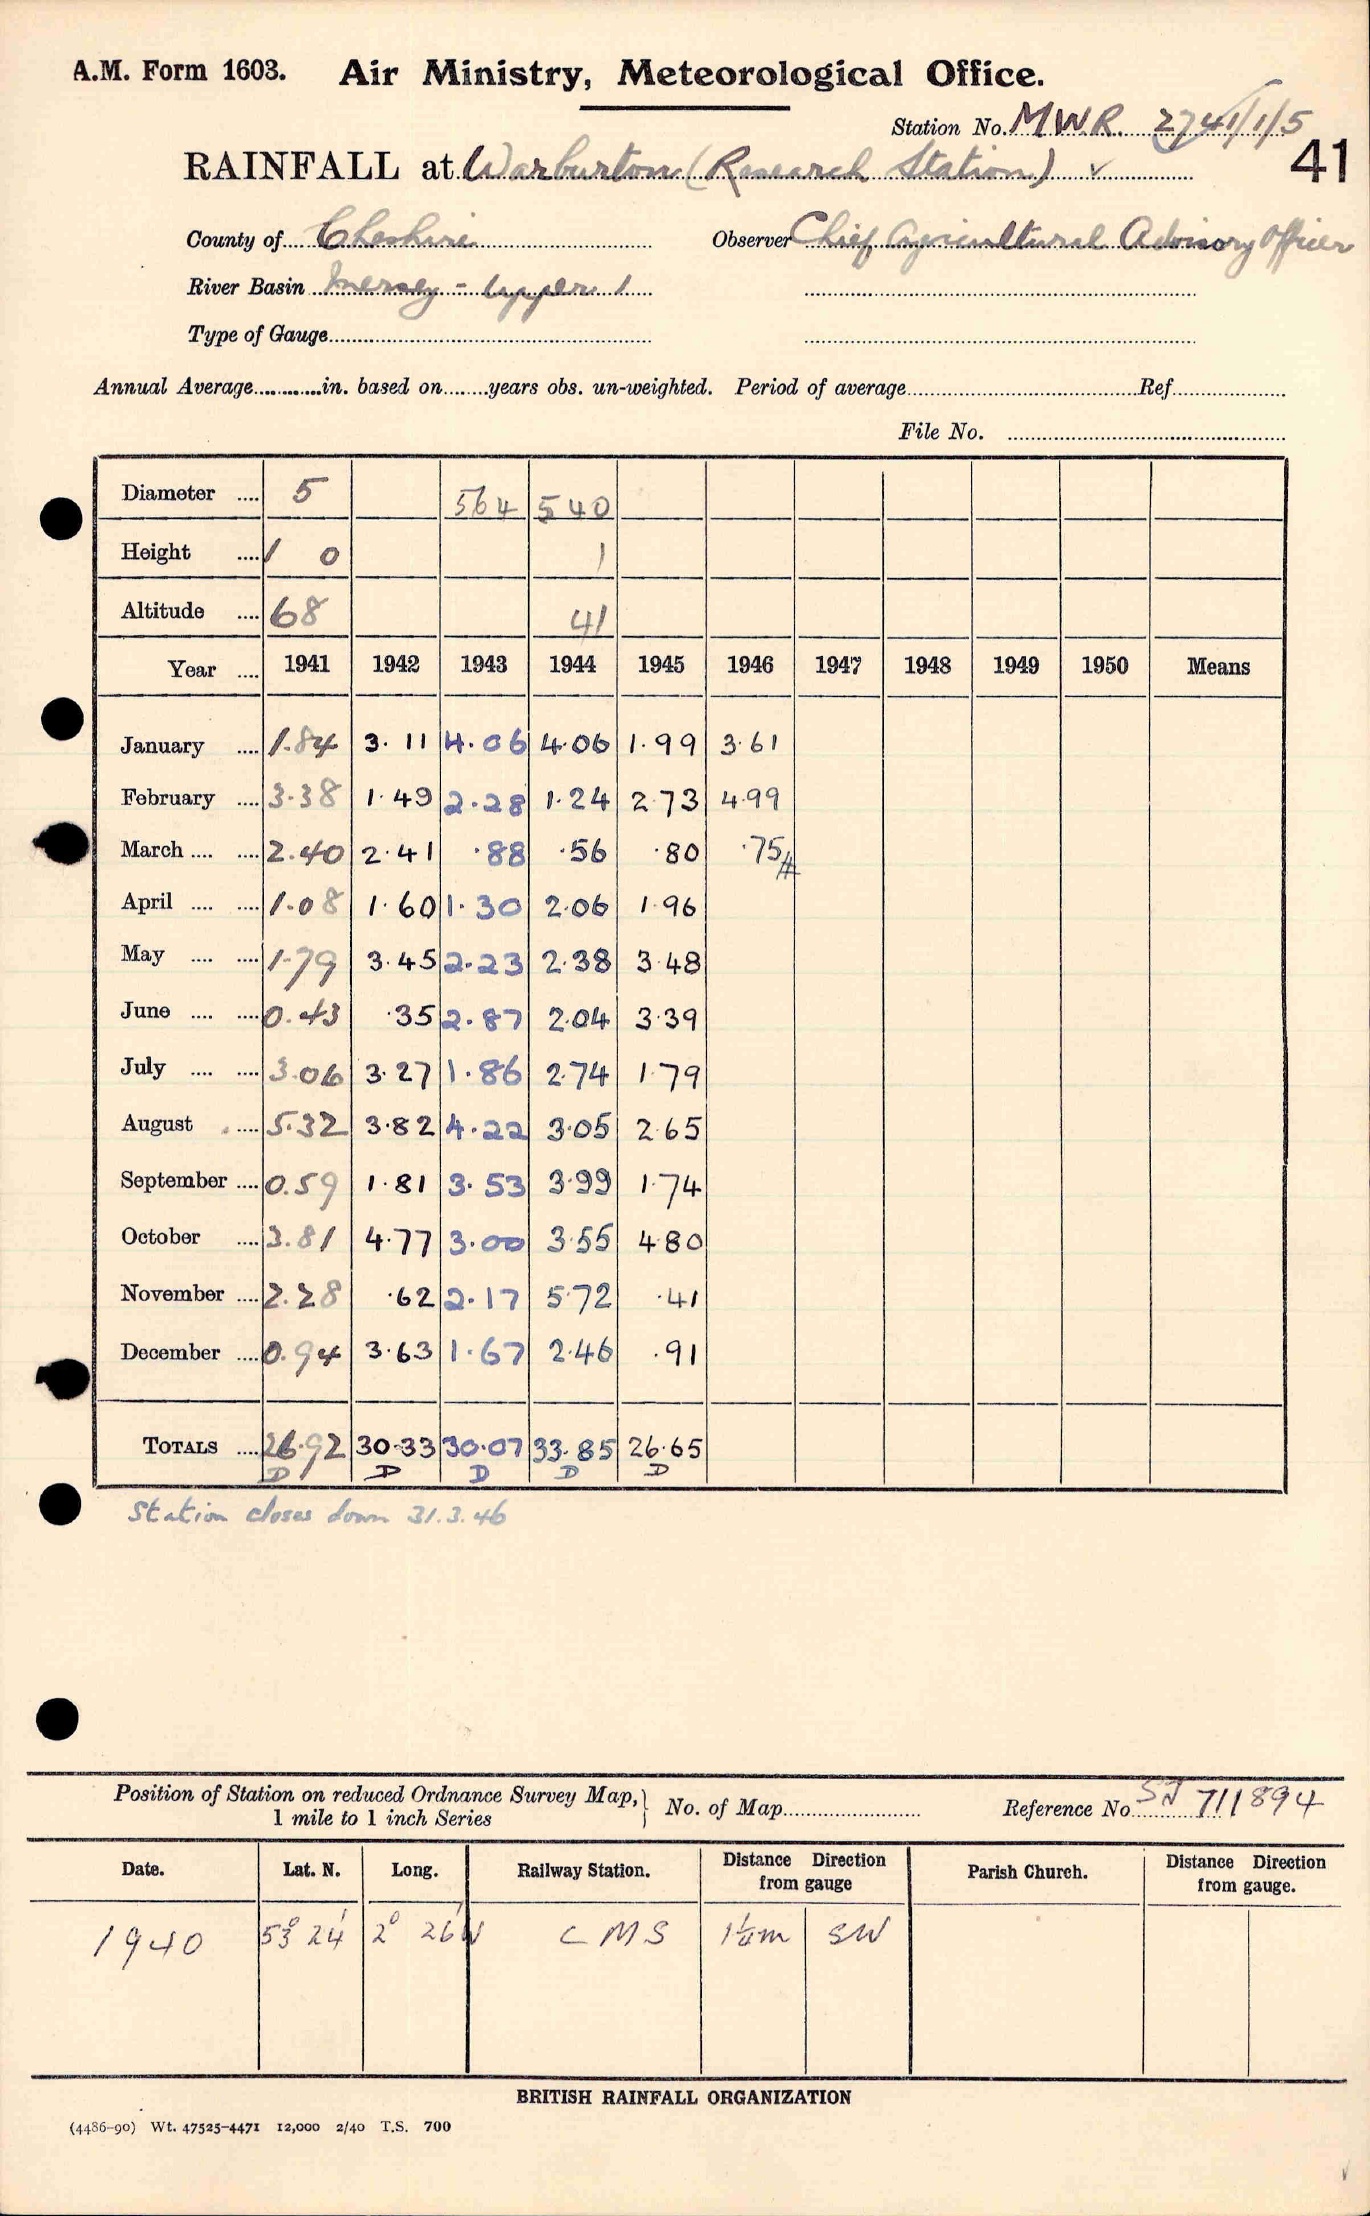 A.M. Form 1603. Air Ministry, Meteorological Office.
Station No. MWR 2741/1/5
41
RAINFALL at Warburton (Research Station) ✓
County of Cheshire Observer Chief Agricultural Advisory Officer
River Basin Mersey - Upper 1
Type of Gauge
Annual Average in. based on years obs. un-weighted. Period of average Ref
File No.
Diameter 5 564 540
Height 1 0 1
Altitude 68 41
Year 1941 1942 1943 1944 1945 1946 1947 1948 1949 1950 Means
January 1.84 3.11 4.06 4.06 1.99 3.61
February 3.38 1.49 2.28 1.24 2.73 4.99
March 2.40 2.41 .88 .56 .80 .75#
April 1.08 1.60 1.30 2.06 1.96
May 1.79 3.45 2.23 2.38 3.48
June 0.43 .35 2.87 2.04 3.39
July 3.06 3.27 1.86 2.74 1.79
August 5.32 3.82 4.22 3.05 2.65
September 0.59 1.81 3.53 3.99 1.74
October 3.81 4.77 3.00 3.55 4.80
November 2.28 .62 2.17 5.72 .41
December 0.94 3.63 1.67 2.46 .91
TOTALS 26.92 30.33 30.07 33.85 26.65
D D D D D
Station closes down 31.3.46
Position of Station on reduced Ordnance Survey Map, 1 mile to 1 inch Series No. of Map Reference No SJ 711894
Date. Lat. N. Long. Railway Station. Distance Direction from gauge Parish Church. Distance Direction from gauge.
1940 53° 24' 2° 26' W C M S 1¼m SW
BRITISH RAINFALL ORGANIZATION
(4486-90) Wt. 47525-4471 12,000 2/40 T.S. 700